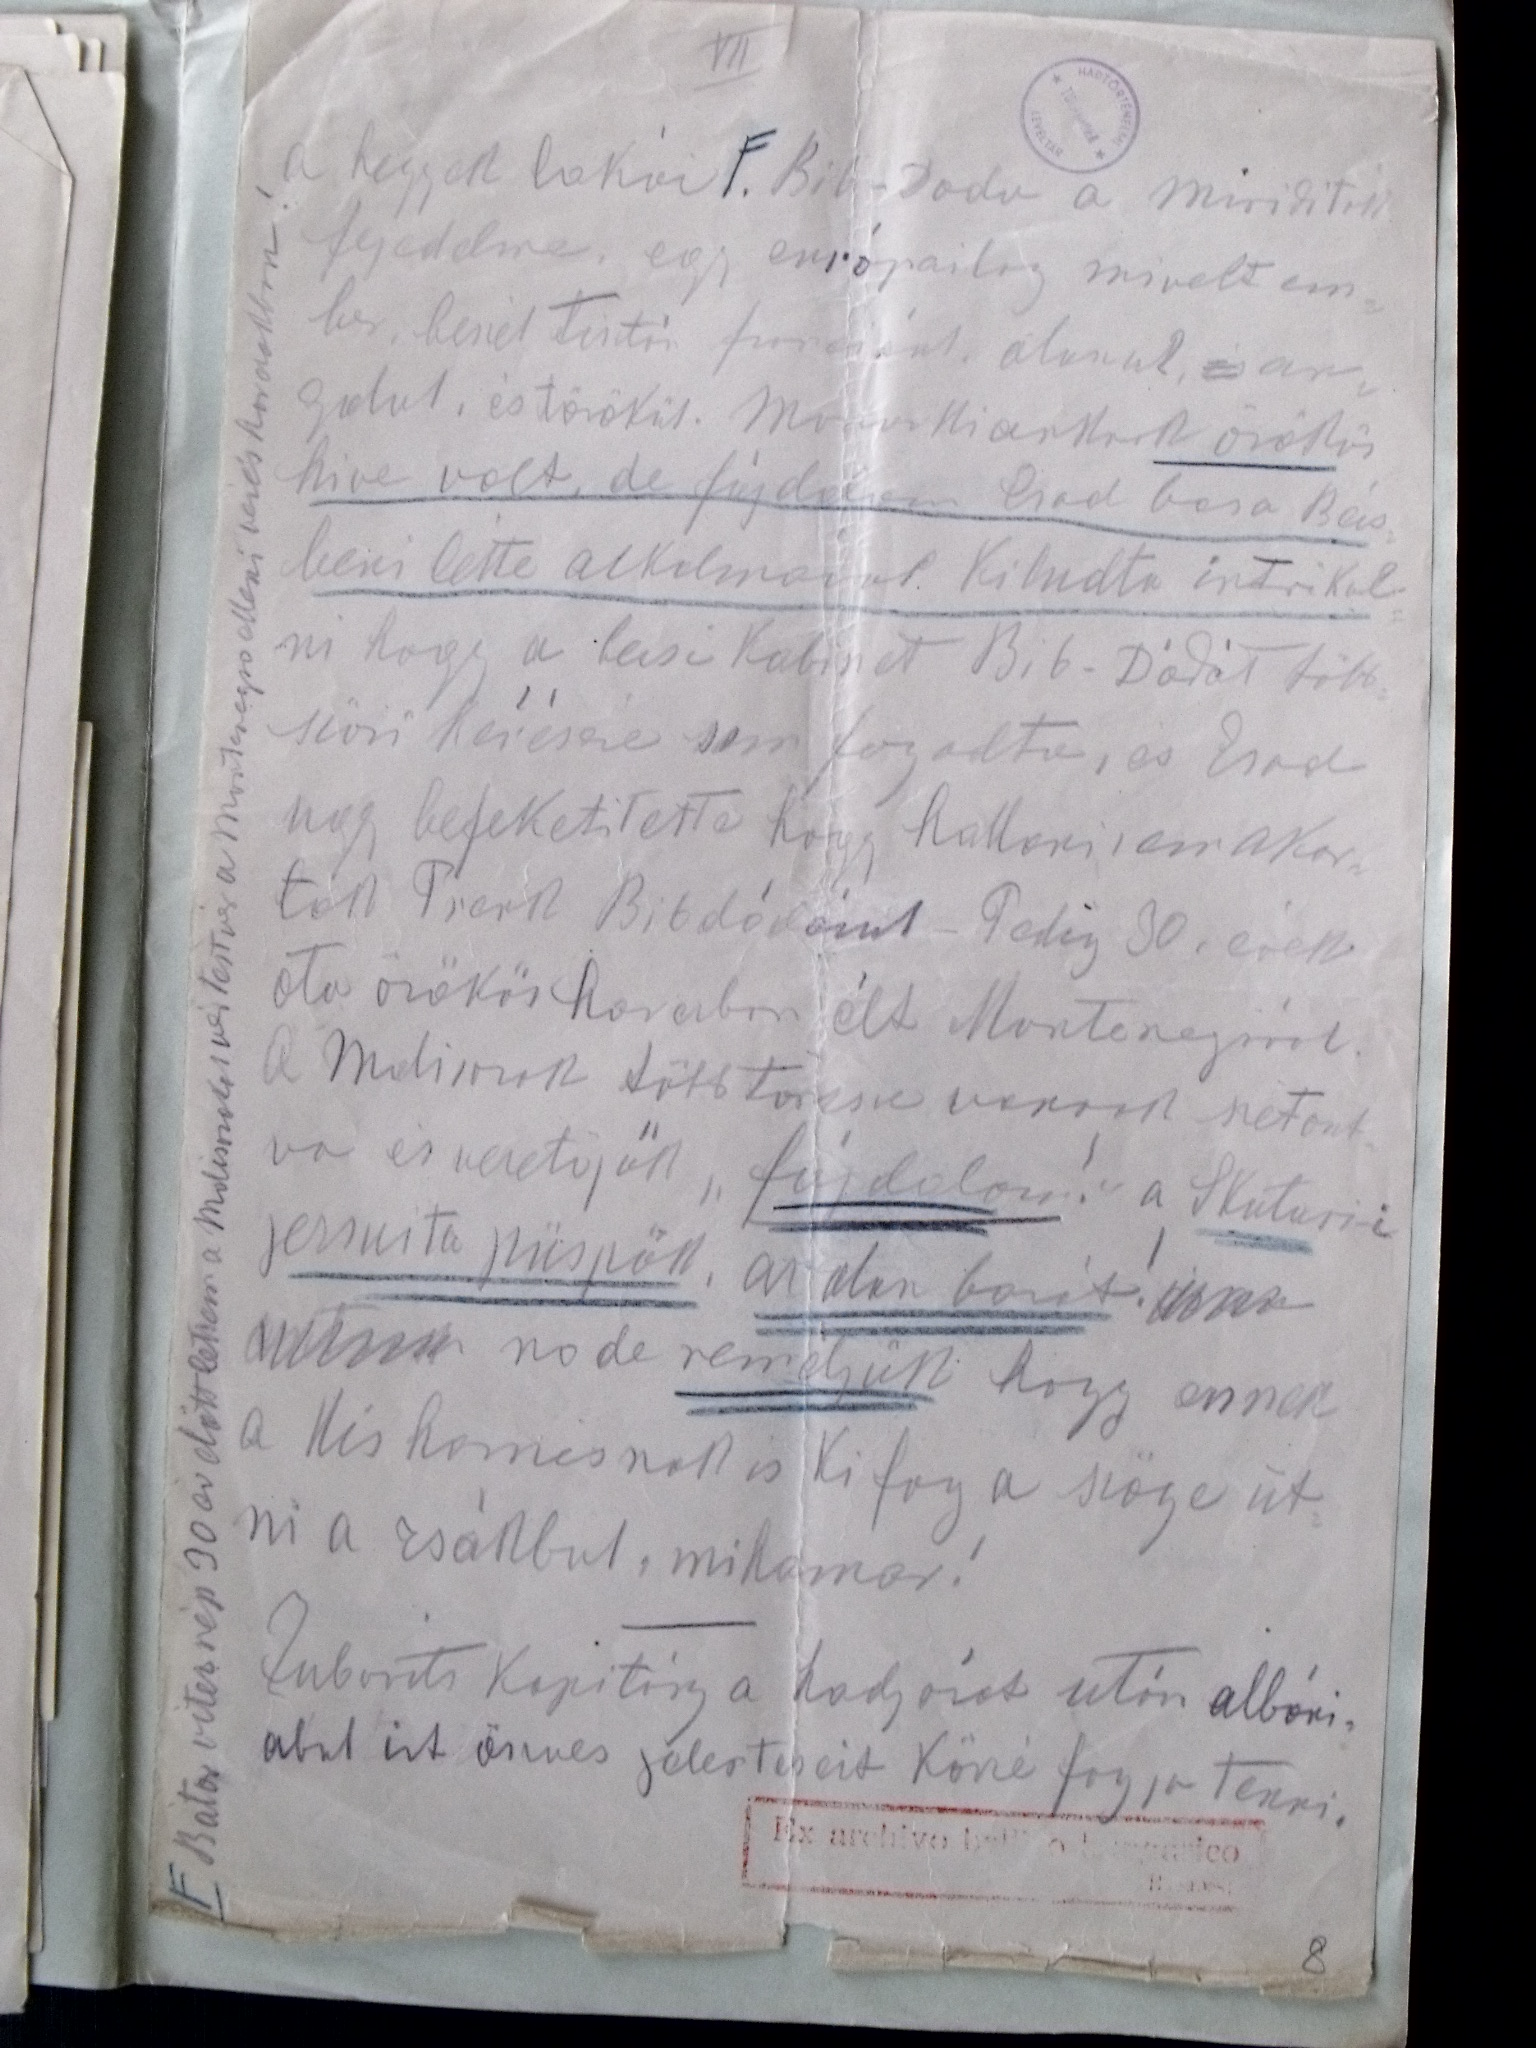 VII
HADTÖRTÉNELMI LEVÉLTÁR
a hegyek lakói F. Bib-Doda a miriditák
fejedelme, egy európailag mivelt em=
ber, beszél tisztán franciául, olaszul, an=
golul, és törökül. Monarkiánknak örökös
hive volt, de fájdalom Esad basa Bécs=
beni léte alkalmával. Kitudta intrikál=
ni hogy a bécsi kabinet Bib-Dódát több=
szöri kérésére sem fogadta, és Esad
ugy befeketitette hogy hallani sem akar=
tak Prenk Bibdódáról - Pedig 30. évek
óta örökös harcban élt Montenegróval.
A Malisorok több törzsre vannak szétoszt=
va és vezetőjük „fájdalom!" a Skutari-i
jezsuita püspök, az álnok barát!
no de reméljük hogy ennek
a kis hamisnak is ki fog a szöge üt=
ni a zsákbul, mihamar!
Zubovits Kapitány a hadjárat után albáni=
abul irt összes jelentéseit közzé fogja tenni.
F Bátor vitéz nép 30 év előtt lettem a Malisorokkal vértestvér a Montenegro elleni véres harcokban!
Ex archivo bellico hungarico
8